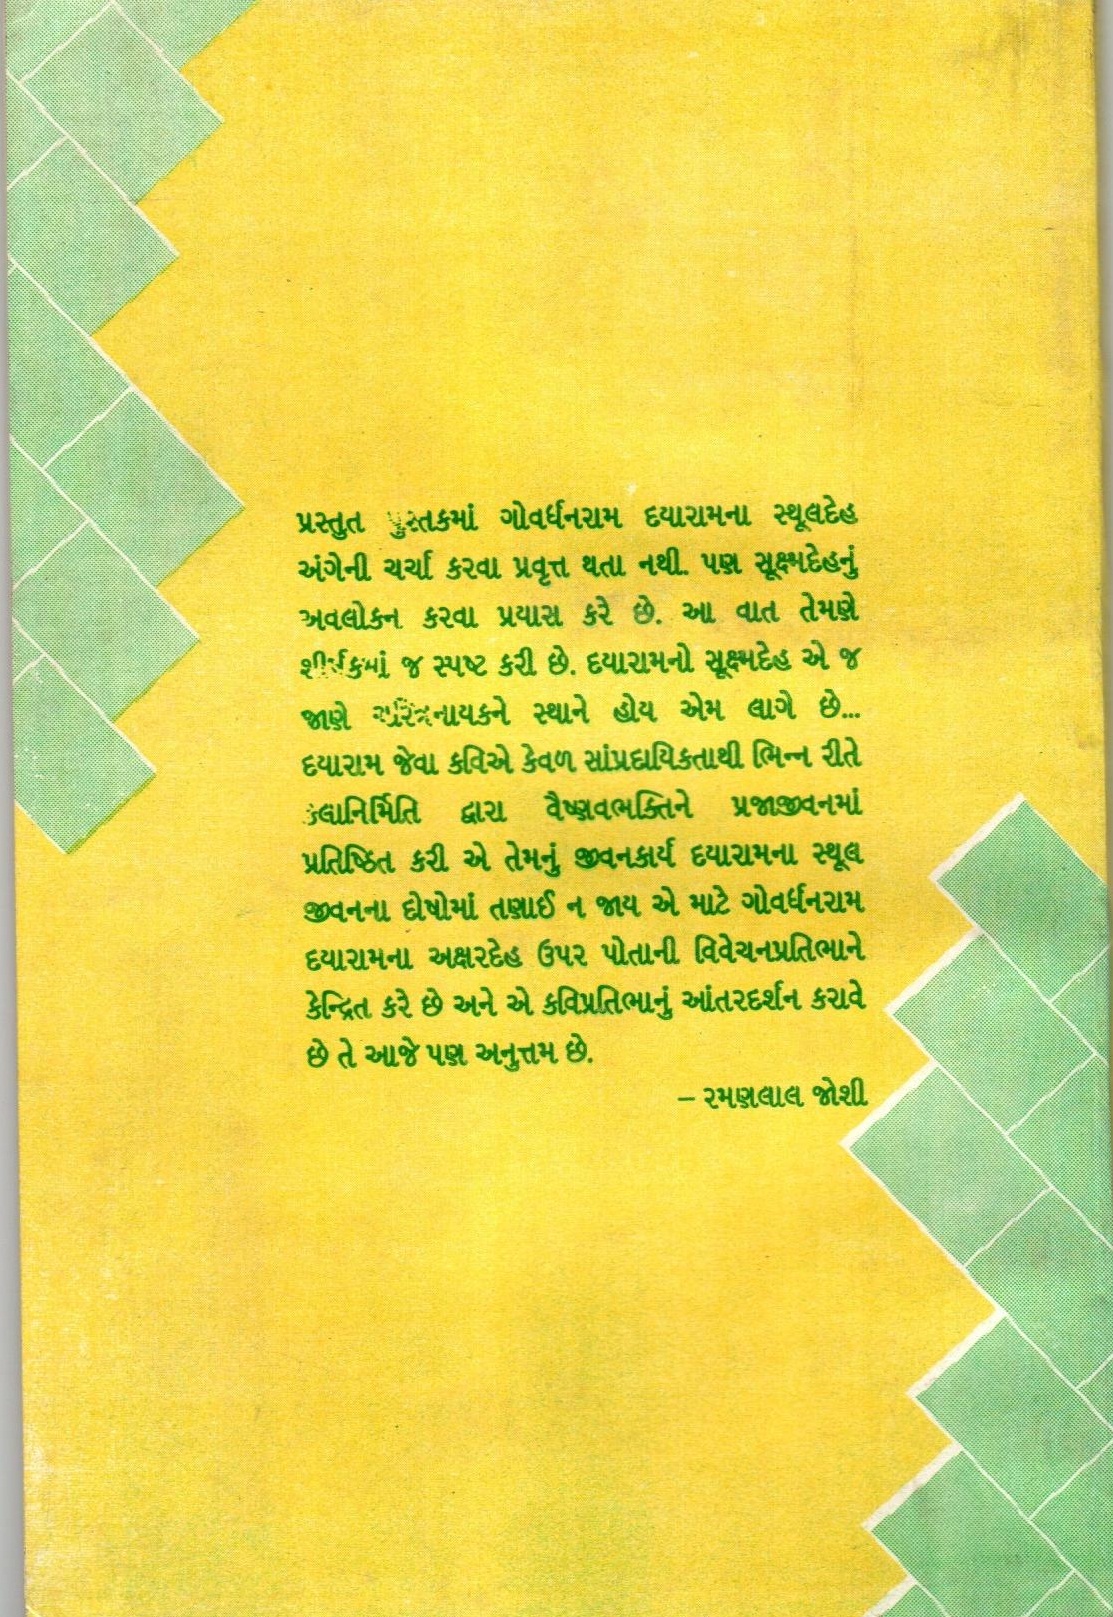 પ્રસ્તુત પુસ્તકમાં ગોવર્ધનરામ દયારામના સ્થૂલદેહ
અંગેની ચર્ચા કરવા પ્રવૃત્ત થતા નથી. પણ સૂક્ષ્મદેહનું
અવલોકન કરવા પ્રયાસ કરે છે. આ વાત તેમણે
શીર્ષકમાં જ સ્પષ્ટ કરી છે. દયારામનો સૂક્ષ્મદેહ એ જ
જાણે ચરિત્રનાયકને સ્થાને હોય એમ લાગે છે...
દયારામ જેવા કવિએ કેવળ સાંપ્રદાયિકતાથી ભિન્ન રીતે
કલાનિર્મિતિ દ્વારા વૈષ્ણવભક્તિને પ્રજાજીવનમાં
પ્રતિષ્ઠિત કરી એ તેમનું જીવનકાર્ય દયારામના સ્થૂલ
જીવનના દોષોમાં તણાઈ ન જાય એ માટે ગોવર્ધનરામ
દયારામના અક્ષરદેહ ઉપર પોતાની વિવેચનપ્રતિભાને
કેન્દ્રિત કરે છે અને એ કવિપ્રતિભાનું આંતરદર્શન કરાવે
છે તે આજે પણ અનુત્તમ છે.
– રમણલાલ જોશી